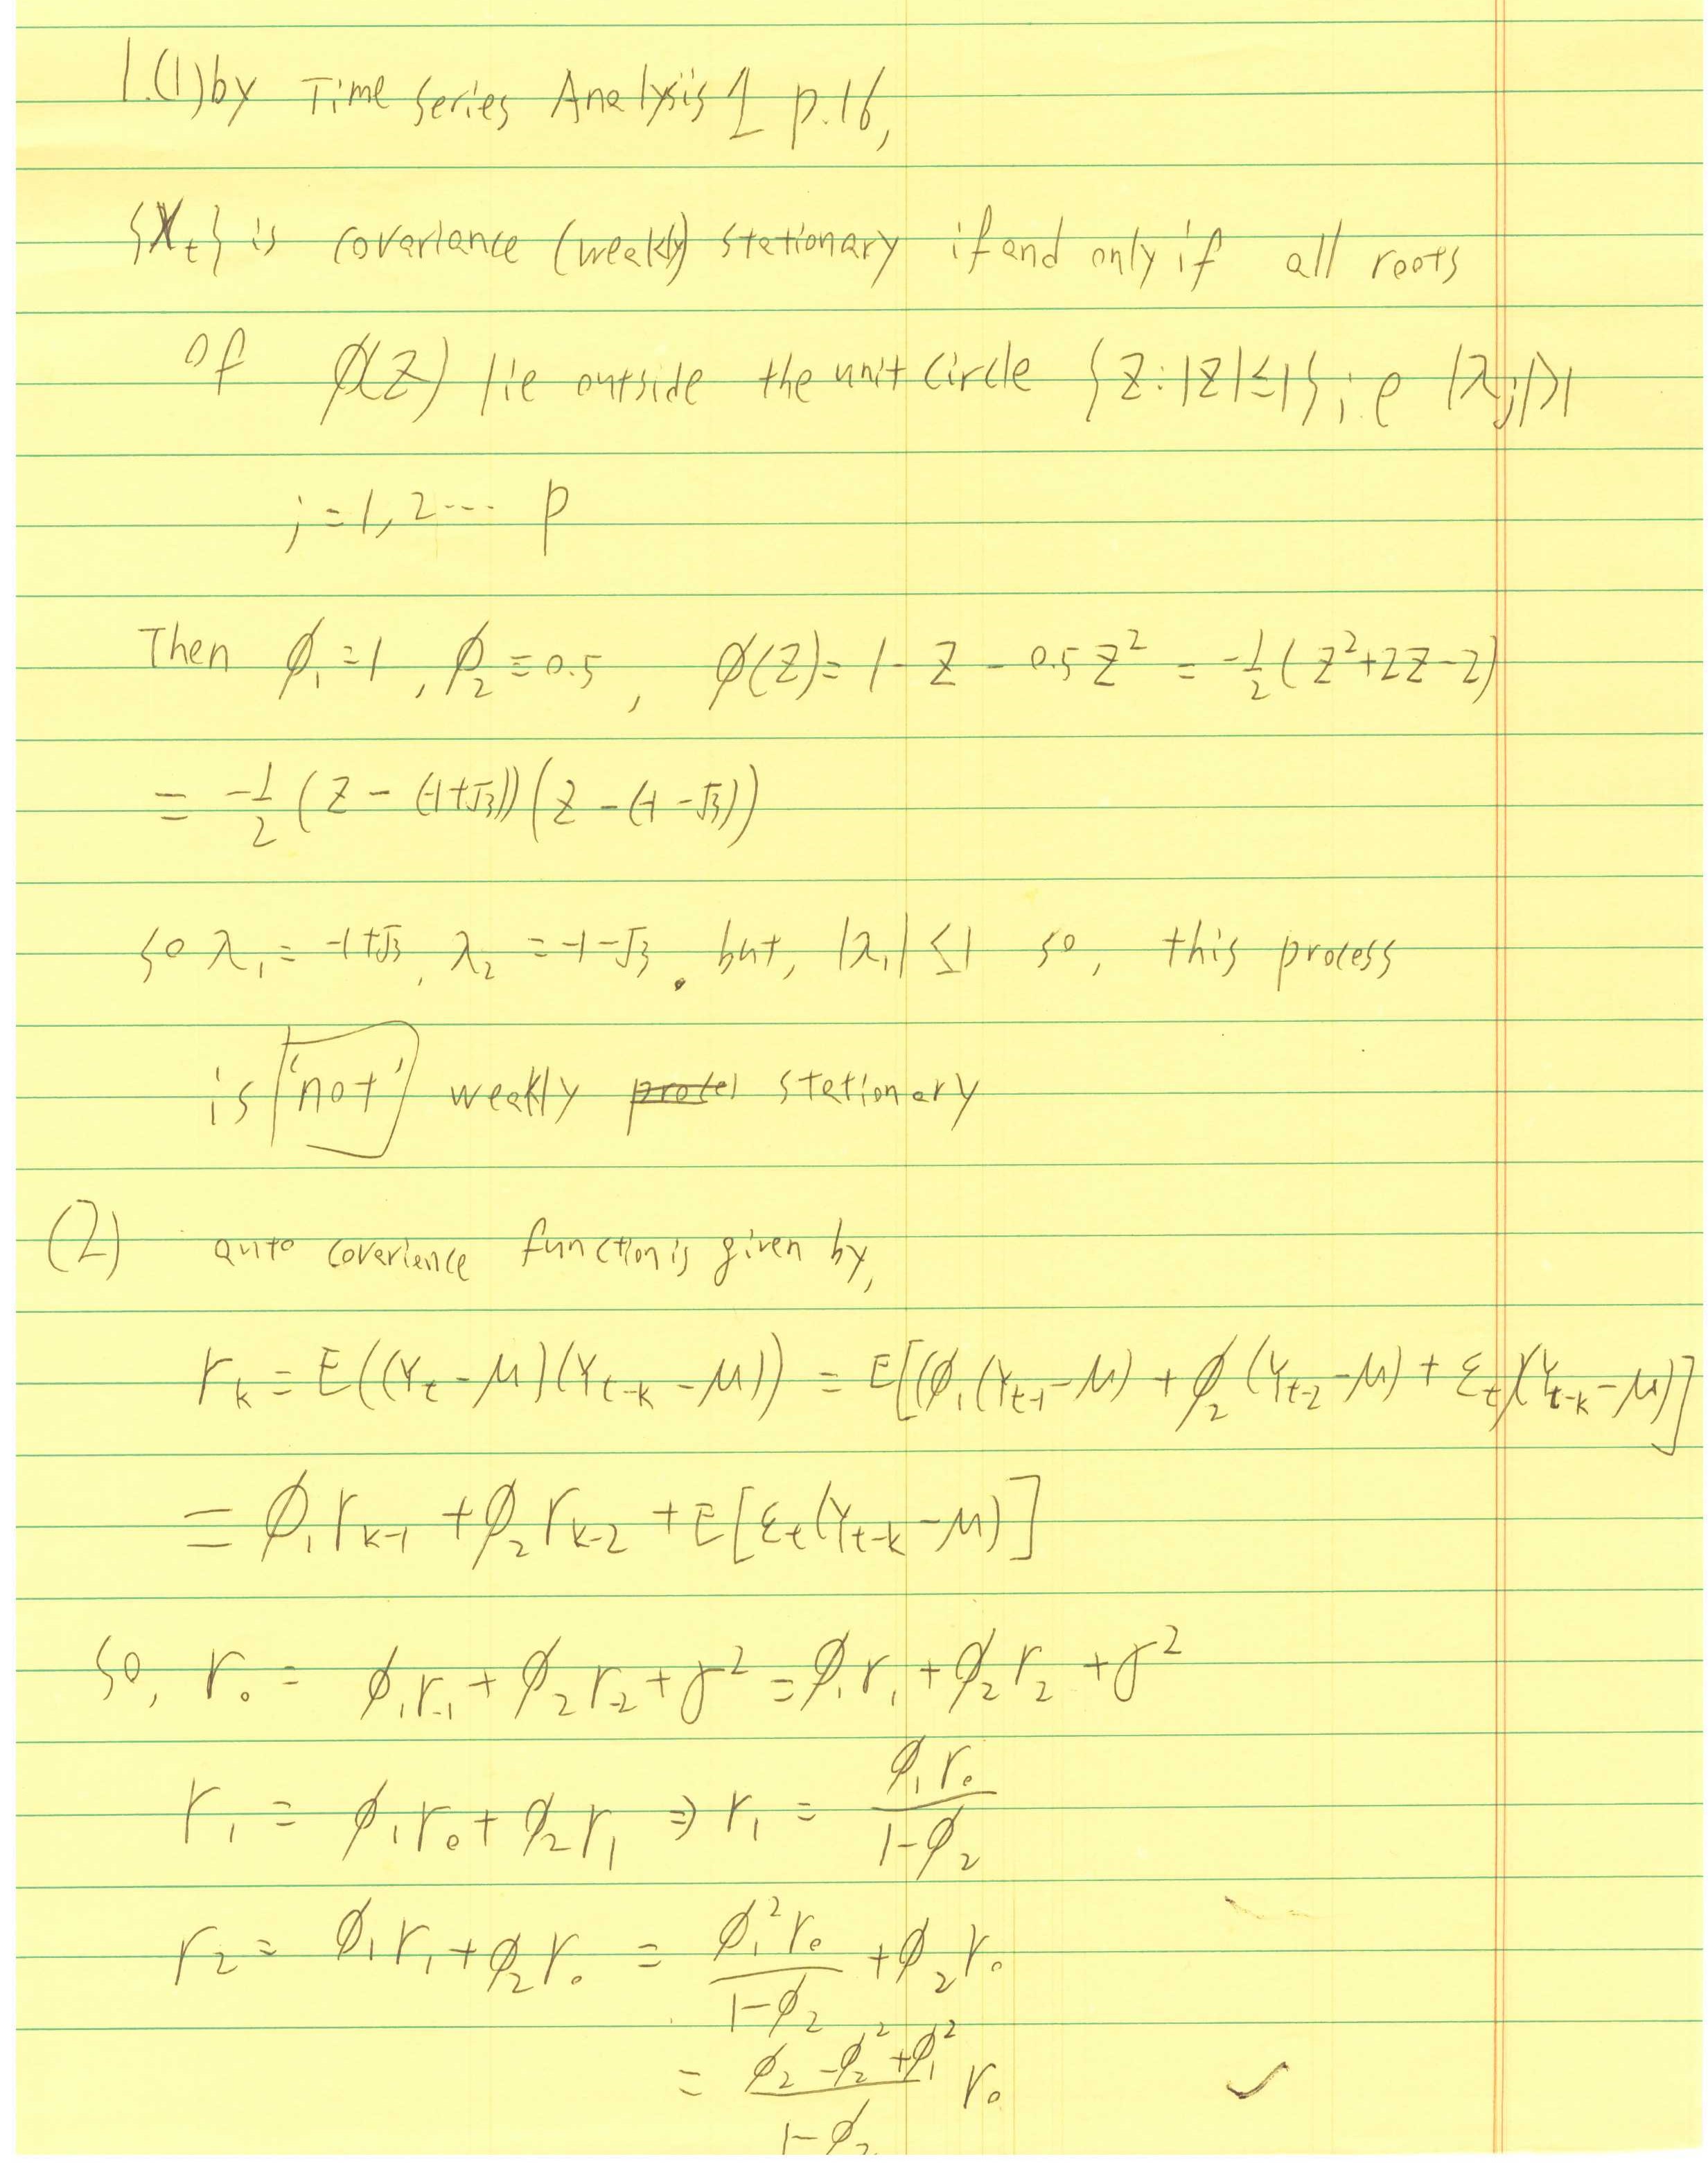 1.(1) by Time Series Analysis 1 p.16,
{X_t} is covariance (weakly) stationary if and only if all roots
of ϕ(Z) lie outside the unit circle {Z : |Z| ≤ 1} i.e |λ_j|>1
j = 1, 2 ... p
Then ϕ_1 = 1, ϕ_2 = 0.5, ϕ(Z) = 1 - Z - 0.5 Z^2 = -1/2 (Z^2+2Z-2)
= -1/2 (Z - (-1+√3)) (Z - (-1-√3))
so λ_1 = -1+√3, λ_2 = -1-√3. but, |λ_1| ≤ 1 so, this process
is 'not' weakly stationary
(2) auto covarience function is given by,
r_k = E((Y_t - μ)(Y_{t-k} - μ)) = E[(ϕ_1(Y_{t-1} - μ) + ϕ_2(Y_{t-2} - μ) + ε_t)(Y_{t-k} - μ)]
= ϕ_1 r_{k-1} + ϕ_2 r_{k-2} + E[ε_t(Y_{t-k} - μ)]
So, r_0 = ϕ_1 r_{-1} + ϕ_2 r_{-2} + σ^2 = ϕ_1 r_1 + ϕ_2 r_2 + σ^2
r_1 = ϕ_1 r_0 + ϕ_2 r_1 ⇒ r_1 = ϕ_1 r_0 / (1-ϕ_2)
r_2 = ϕ_1 r_1 + ϕ_2 r_0 = ϕ_1^2 r_0 / (1-ϕ_2) + ϕ_2 r_0
= (ϕ_2 - ϕ_2^2 + ϕ_1^2) / (1-ϕ_2) r_0 ✓